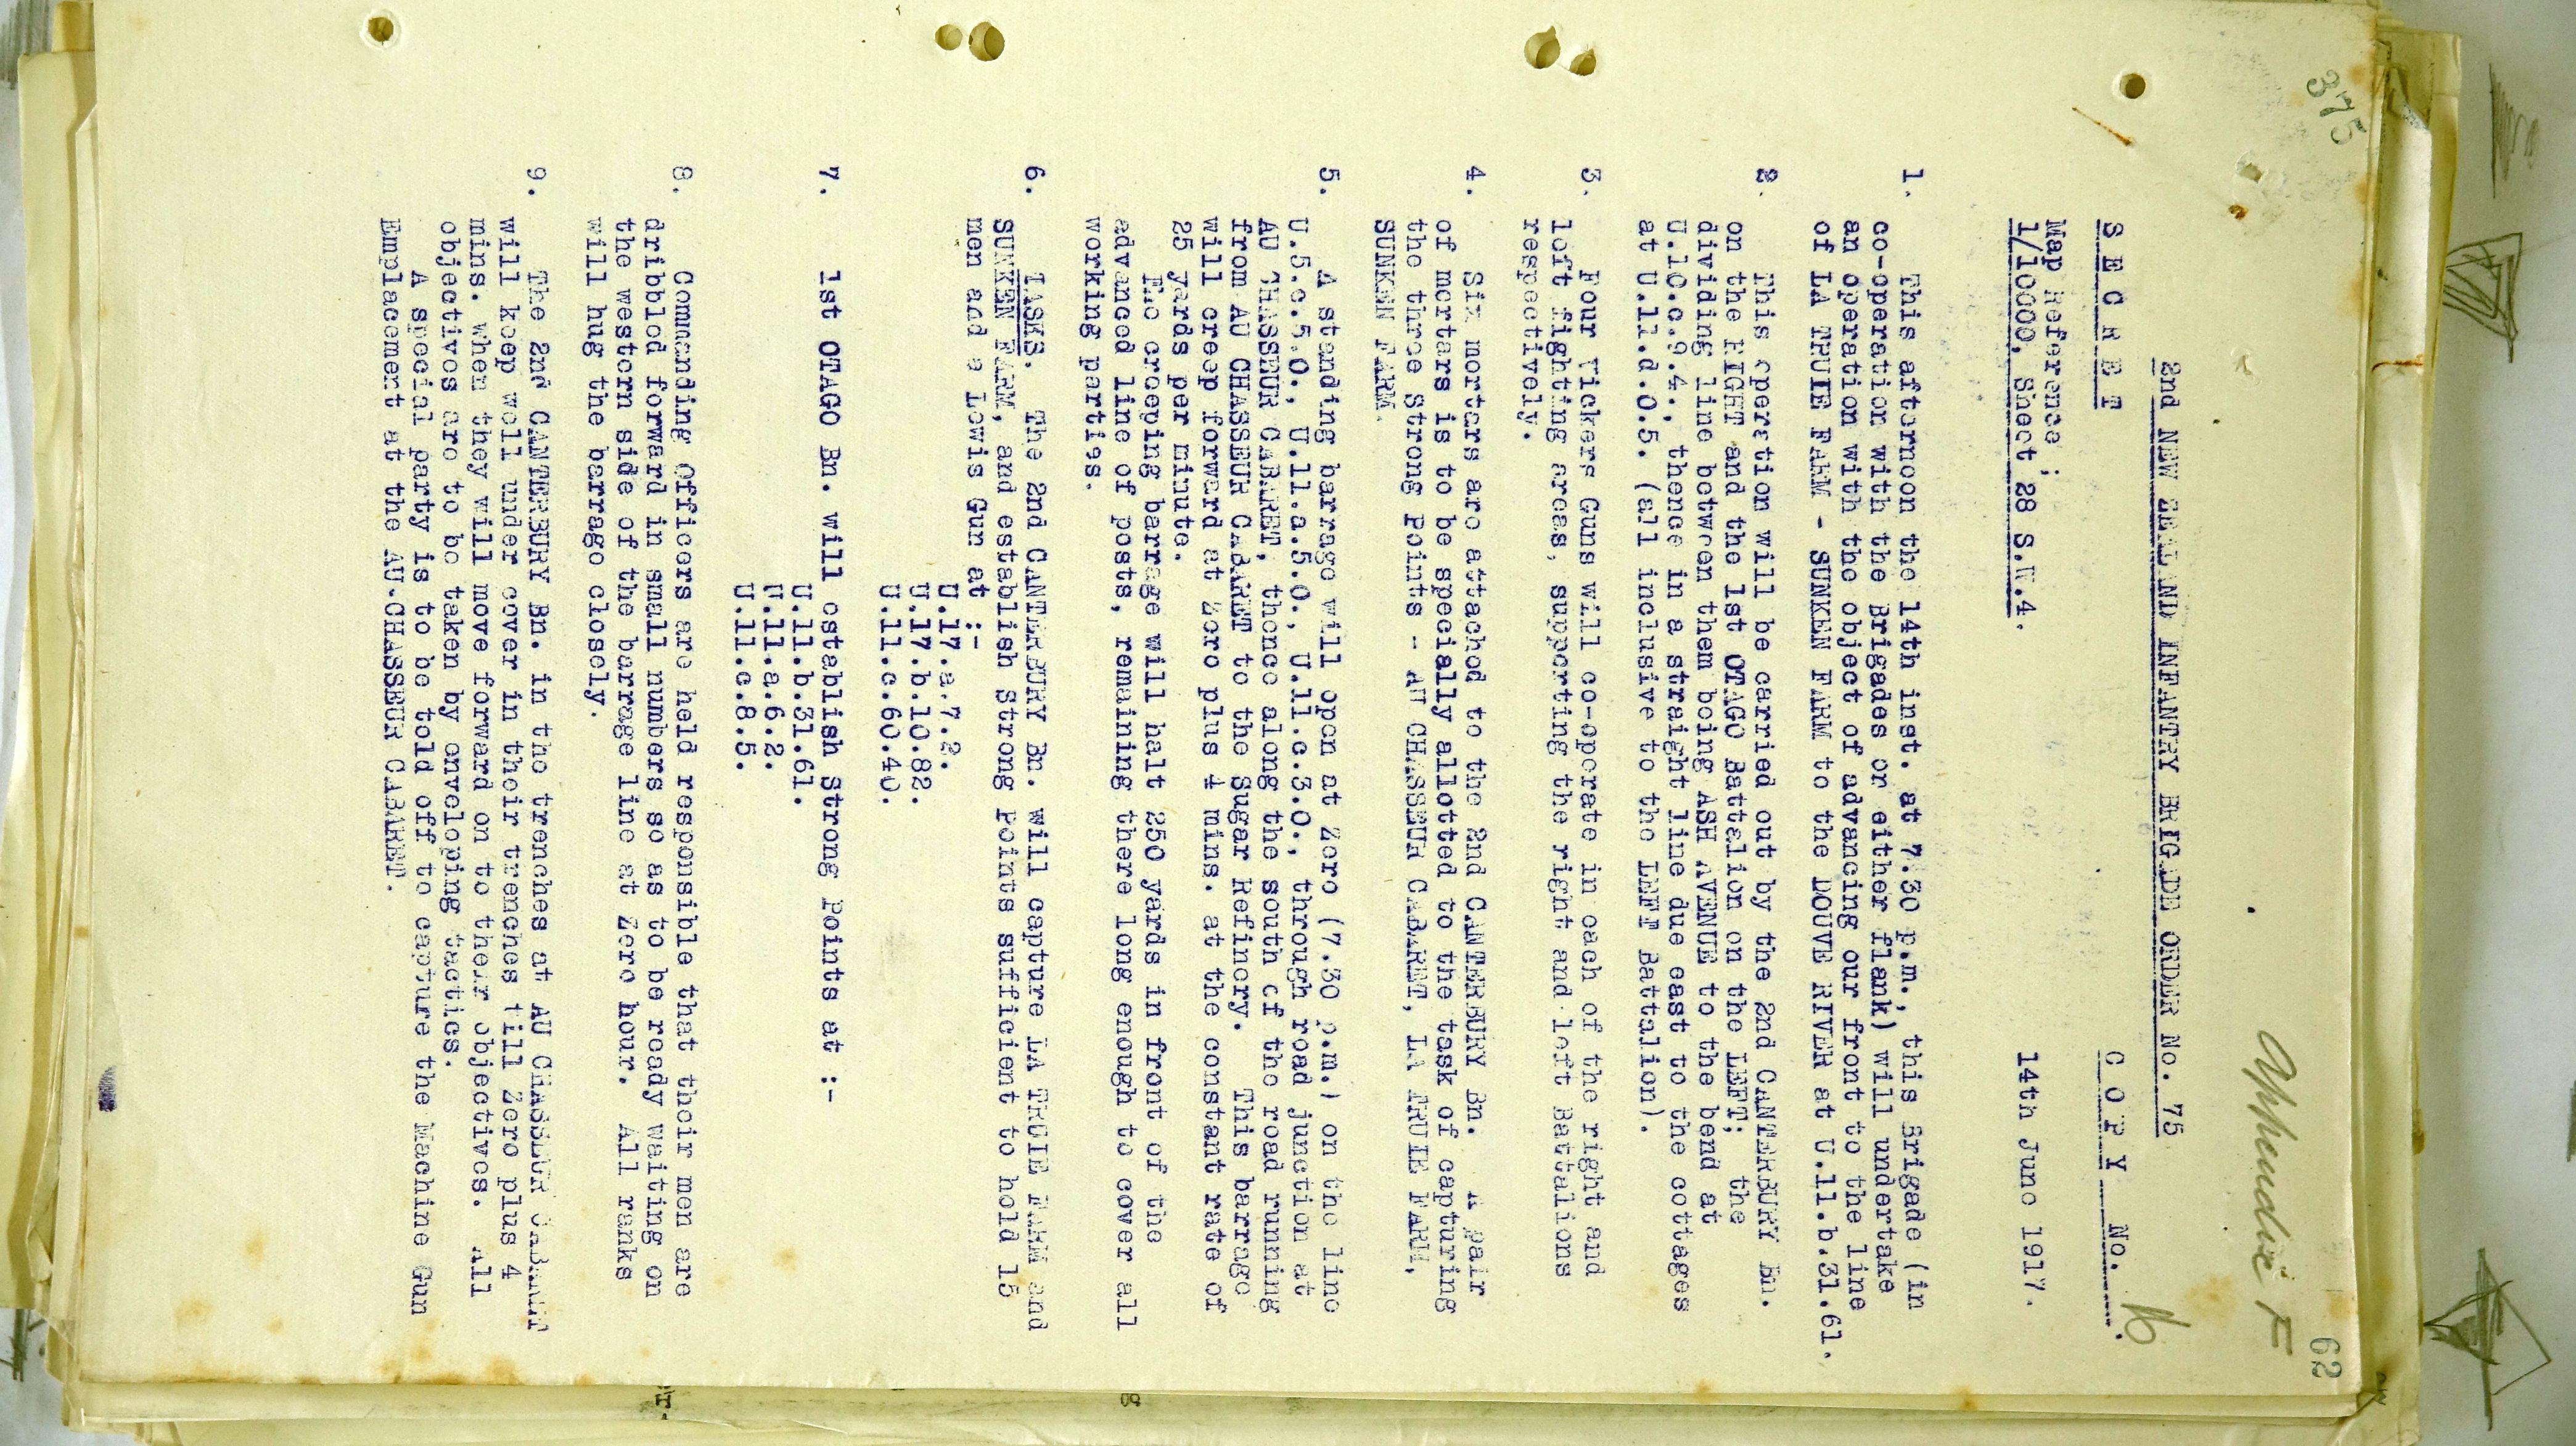 375
62
Appendix F
2nd NEW ZEALAND INFANTRY BRIGADE ORDER No. 75
S E C R E T
C O P Y No. 16.
Map Reference ;
1/10000, Sheet 28 S.W.4.
14th June 1917.
1. This afternoon the 14th inst. at 7.30 p.m., this Brigade (in
co-operation with the Brigades on either flank) will undertake
an operation with the object of advancing our front to the line
of LA TRUIE FARM - SUNKEN FARM to the DOUVE RIVER at U.11.b.31.61.
2. This operation will be carried out by the 2nd CANTERBURY Bn.
on the RIGHT and the 1st OTAGO Battalion on the LEFT; the
dividing line between them being ASH AVENUE to the bend at
U.10.c.9.4., thence in a straight line due east to the cottages
at U.11.d.0.5. (all inclusive to the LEFT Battalion).
3. Four Vickers Guns will co-operate in each of the right and
left fighting areas, supporting the right and left Battalions
respectively.
4. Six mortars are attached to the 2nd CANTERBURY Bn. A pair
of mortars is to be specially allotted to the task of capturing
the three Strong Points -- AU CHASSEUR CABARET, LA TRUIE FARM,
SUNKEN FARM.
5. A standing barrage will open at Zero (7.30 p.m.) on the line
U.5.c.5.0., U.11.a.5.0., U.11.c.3.0., through road junction at
AU CHASSEUR CABARET, thence along the south of the road running
from AU CHASSEUR CABARET to the Sugar Refinery. This barrage
will creep forward at Zero plus 4 mins. at the constant rate of
25 yards per minute.
The creeping barrage will halt 250 yards in front of the
advanced line of posts, remaining there long enough to cover all
working parties.
6. TASKS. The 2nd CANTERBURY Bn. will capture LA TRUIE FARM and
SUNKEN FARM, and establish Strong Points sufficient to hold 15
men and a Lewis Gun at :-
U.17.a.7.2.
U.17.b.10.82.
U.11.c.60.40.
7. 1st OTAGO Bn. will establish Strong Points at :-
U.11.b.31.61.
U.11.a.6.2.
U.11.c.8.5.
8. Commanding Officers are held responsible that their men are
dribbled forward in small numbers so as to be ready waiting on
the western side of the barrage line at Zero hour. All ranks
will hug the barrage closely.
9. The 2nd CANTERBURY Bn. in the trenches at AU CHASSEUR CABARET
will keep well under cover in their trenches till Zero plus 4
mins. when they will move forward on to their objectives. All
objectives are to be taken by enveloping tactics.
A special party is to be told off to capture the Machine Gun
Emplacement at the AU-CHASSEUR CABARET.